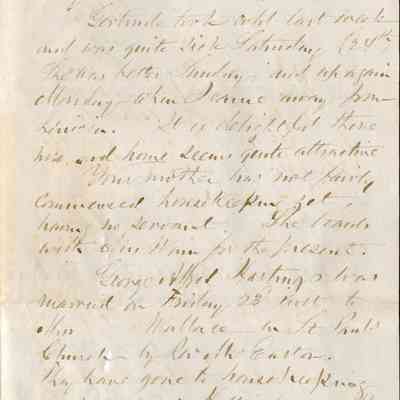 Gertrude took cold last week
and was quite sick Saturday (24th
She was better Sunday and up again
Monday when I came away from
Benicia. It is delightful there
now and home seems quite attractive
Your mother has not fairly
commenced housekeeping yet,
having no servant. She boards
with for the present.
George Hastings was
married on Friday 23d to
Wallace in St Pauls
Church by
They have gone to housekeeping